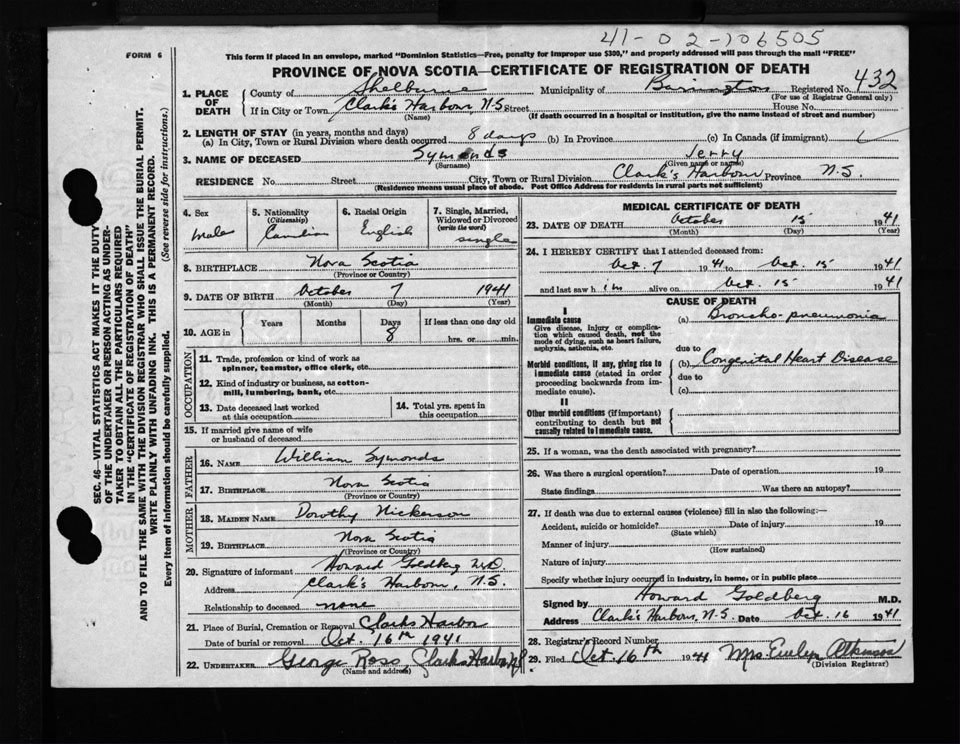 41-02-106505
FORM 6
This form if placed in an envelope, marked "Dominion Statistics—Free, penalty for improper use $300," and properly addressed will pass through the mail "FREE"
PROVINCE OF NOVA SCOTIA—CERTIFICATE OF REGISTRATION OF DEATH
1. PLACE OF DEATH
County of Shelburne Municipality of Barrington Registered No. 432
(For use of Registrar General only)
If in City or Town Clark's Harbour N.S. Street House No.
(Name) (If death occurred in a hospital or institution, give the name instead of street and number)
2. LENGTH OF STAY (in years, months and days)
(a) In City, Town or Rural Division where death occurred 8 days (b) In Province (c) In Canada (if immigrant)
3. NAME OF DECEASED Symonds Jerry
(Surname) (Given name or names)
RESIDENCE No. Street City, Town or Rural Division Clark's Harbour Province N.S.
(Residence means usual place of abode. Post Office Address for residents in rural parts not sufficient)
4. Sex Male
5. Nationality (Citizenship) Canadian
6. Racial Origin English
7. Single, Married, Widowed or Divorced (write the word) single
8. BIRTHPLACE Nova Scotia
(Province or Country)
9. DATE OF BIRTH October 7 1941
(Month) (Day) (Year)
10. AGE in Years Months Days 8 If less than one day old hrs. or min.
OCCUPATION
11. Trade, profession or kind of work as spinner, teamster, office clerk, etc.
12. Kind of industry or business, as cotton-mill, lumbering, bank, etc.
13. Date deceased last worked at this occupation
14. Total yrs. spent in this occupation
15. If married give name of wife or husband of deceased
FATHER
16. NAME William Symonds
17. BIRTHPLACE Nova Scotia
(Province or Country)
MOTHER
18. MAIDEN NAME Dorothy Nickerson
19. BIRTHPLACE Nova Scotia
(Province or Country)
20. Signature of informant Howard Goldberg M.D.
Address Clark's Harbour, N.S.
Relationship to deceased none
21. Place of Burial, Cremation or Removal Clarks Harbor
Date of burial or removal Oct. 16th 1941
22. UNDERTAKER George Ross, Clarks Harbor N.S.
(Name and address)
MEDICAL CERTIFICATE OF DEATH
23. DATE OF DEATH October 15 1941
(Month) (Day) (Year)
24. I HEREBY CERTIFY that I attended deceased from:
Oct. 7 1941 to Oct 15 1941
and last saw him alive on Oct. 15 1941
CAUSE OF DEATH
I
Immediate cause (a) Broncho-pneumonia
Give disease, injury or complication which caused death, not the mode of dying, such as heart failure, asphyxia, asthenia, etc.
due to
Morbid conditions, if any, giving rise to immediate cause (stated in order proceeding backwards from immediate cause).
(b) Congenital Heart Disease
due to
(c)
II
Other morbid conditions (if important) contributing to death but not causally related to immediate cause.
25. If a woman, was the death associated with pregnancy?
26. Was there a surgical operation? Date of operation 19
State findings Was there an autopsy?
27. If death was due to external causes (violence) fill in also the following:—
Accident, suicide or homicide? Date of injury 19
(State which)
Manner of injury
(How sustained)
Nature of injury
Specify whether injury occurred in industry, in home, or in public place
Signed by Howard Goldberg M.D.
Address Clark's Harbour, N.S. Date Oct. 16 1941
28. Registrar's Record Number
29. Filed Oct. 16th 1941 Mrs. Evelyn Atkinson
(Division Registrar)
SEC. 46—VITAL STATISTICS ACT MAKES IT THE DUTY
OF THE UNDERTAKER OR PERSON ACTING AS UNDER-
TAKER TO OBTAIN ALL THE PARTICULARS REQUIRED
IN THE "CERTIFICATE OF REGISTRATION OF DEATH"
AND TO FILE THE SAME WITH THE DIVISION REGISTRAR WHO SHALL ISSUE THE BURIAL PERMIT.
WRITE PLAINLY WITH UNFADING INK. THIS IS A PERMANENT RECORD.
Every item of information should be carefully supplied. (See reverse side for instructions.)